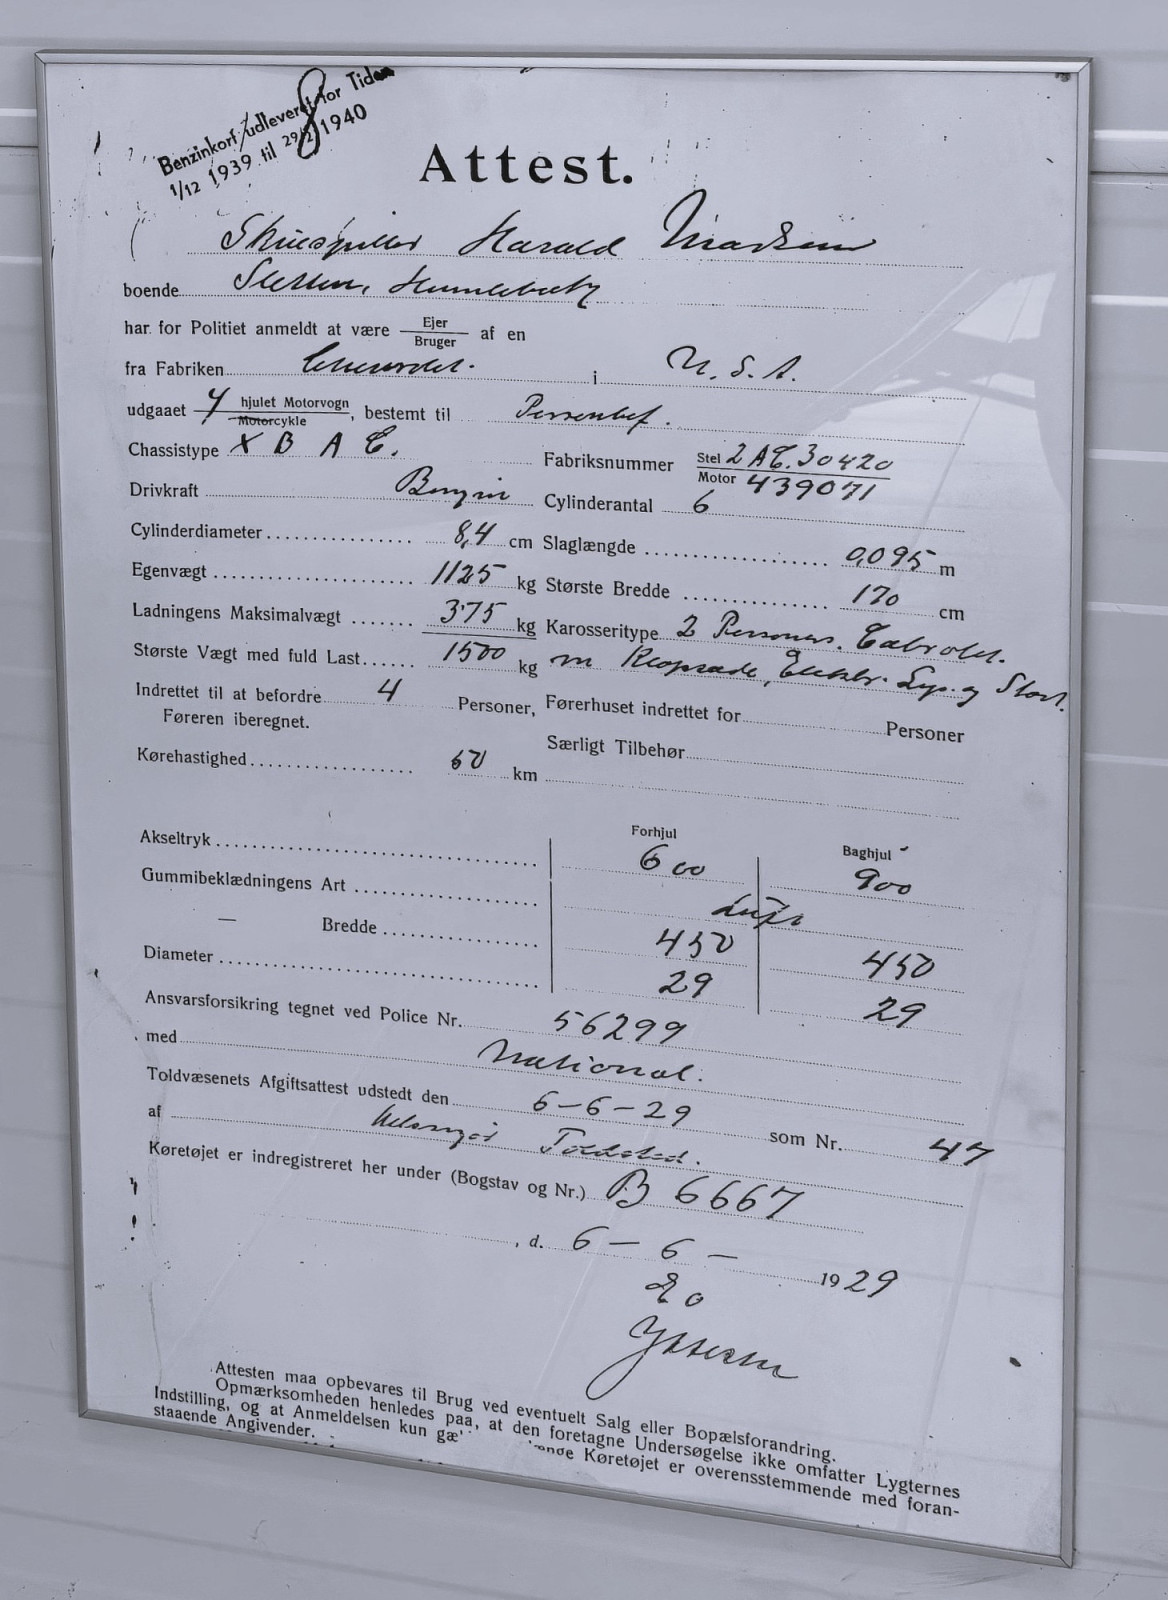 Benzinkort udleveret for Tiden
1/12 1939 til 29/2 1940
8
Attest.
Skuespiller Harald Madsen
boende Sletten, Humlebæk
har for Politiet anmeldt at være Ejer / Bruger af en
fra Fabriken Chevrolet. i U. S. A.
udgaaet 4 hjulet Motorvogn / Motorcykle, bestemt til Personbef.
Chassistype X B A C. Fabriksnummer Stel 2 AC. 30420 / Motor 439071
Drivkraft Benzin Cylinderantal 6
Cylinderdiameter 8,4 cm Slaglængde 0,095 m
Egenvægt 1125 kg Største Bredde 170 cm
Ladningens Maksimalvægt 375 kg Karosseritype 2 Personers. Cabrolet.
Største Vægt med fuld Last 1500 kg m Elektr. Lys. og Start.
Indrettet til at befordre 4 Personer, Førerhuset indrettet for Personer
Føreren iberegnet. Særligt Tilbehør
Kørehastighed 60 km
Forhjul Baghjul
Akseltryk 600 900
Gummibeklædningens Art Luft
— Bredde 450 450
Diameter 29 29
Ansvarsforsikring tegnet ved Police Nr. 56299
med National.
Toldvæsenets Afgiftsattest udstedt den 6-6-29 som Nr. 47
af Helsingør Toldsted.
Køretøjet er indregistreret her under (Bogstav og Nr.) B 6667
, d. 6 - 6 - 1929
Attesten maa opbevares til Brug ved eventuelt Salg eller Bopælsforandring.
Opmærksomheden henledes paa, at den foretagne Undersøgelse ikke omfatter Lygternes
Indstilling, og at Anmeldelsen kun gæ ende Køretøjet er overensstemmende med foran-
staaende Angivender.